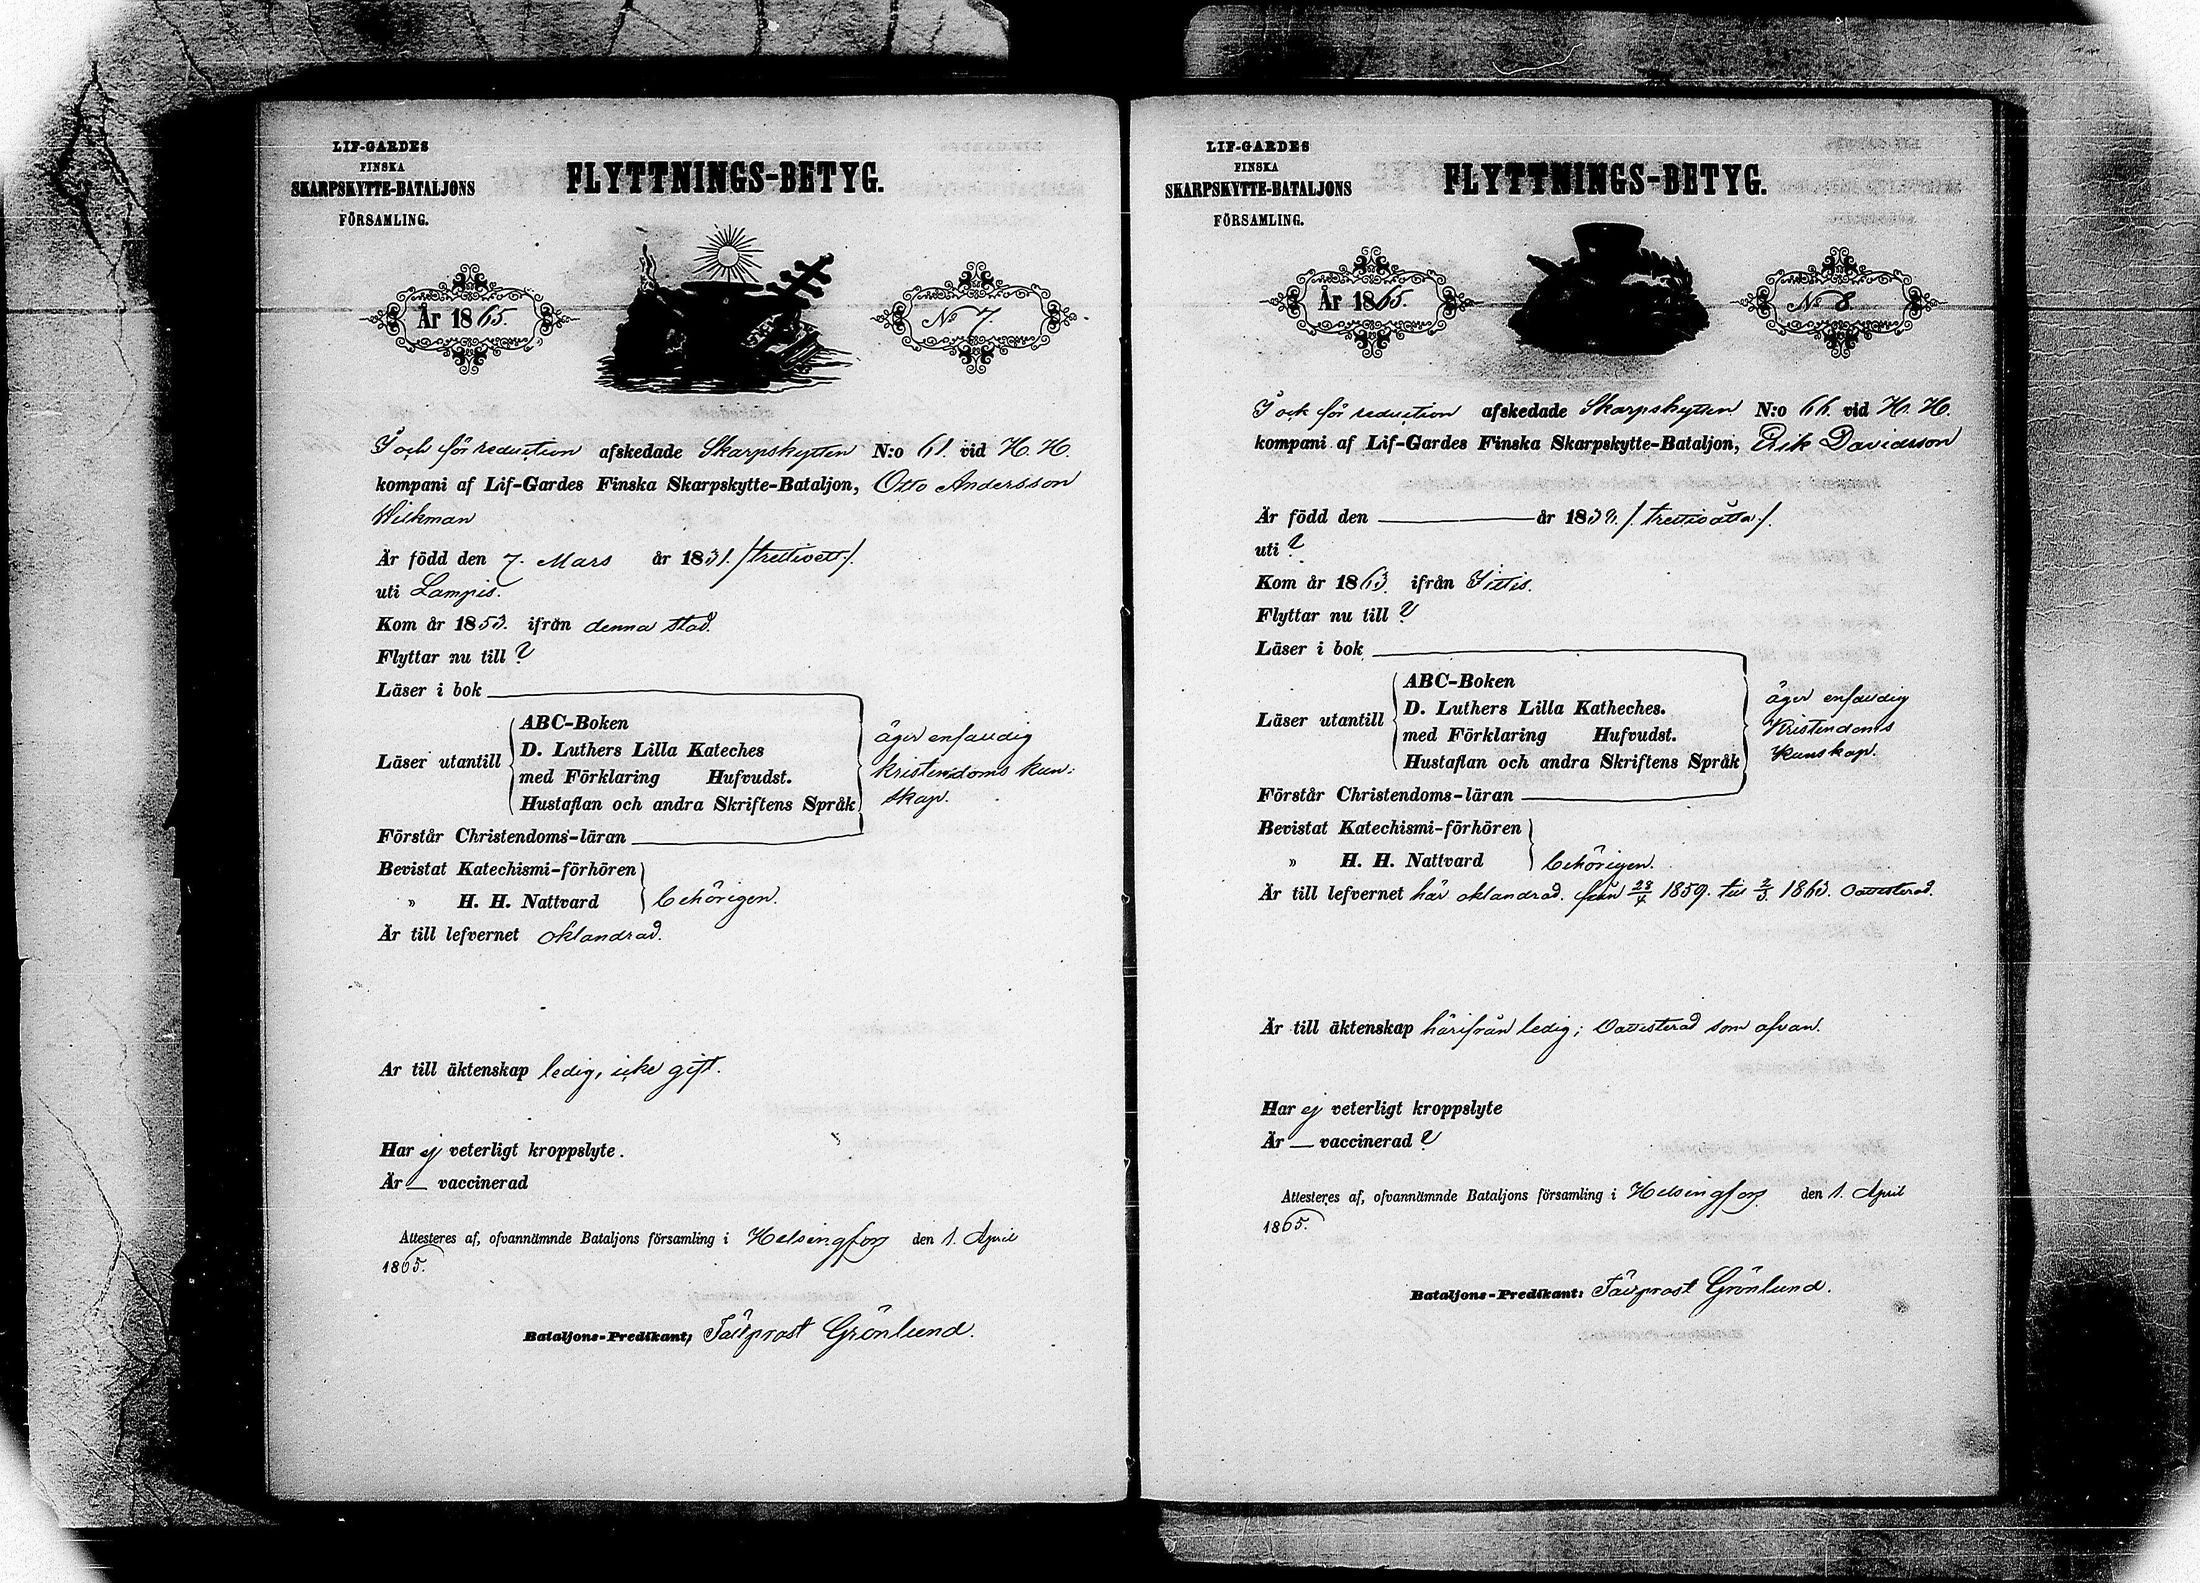 LIF-GARDES
FINSKA
SKARPSKYTTE-BATALJONS
FÖRSAMLING.
FLYTTNINGS-BETYG.
År 1865.
No 7.
I och för reduction afskedade Skarpskytten N:o 61. vid H. H.
kompani af Lif-Gardes Finska Skarpskytte-Bataljon, Otto Andersson
Wickman
Är född den 7. Mars år 1831. /trettioett/.
uti Lampis.
Kom år 1853. ifrån denna stad.
Flyttar nu till ?
Läser i bok
ABC-Boken
Läser utantill D. Luthers Lilla Kateches
med Förklaring Hufvudst.
Hustaflan och andra Skriftens Språk
äger enfaldig
kristendoms kun-
skap.
Förstår Christendoms-läran
Bevistat Katechismi-förhören
„ H. H. Nattvard behörigen.
Är till lefvernet oklandrad.
Ar till äktenskap ledig, icke gift.
Har ej veterligt kroppslyte.
Är — vaccinerad
Attesteres af, ofvannämnde Bataljons församling i Helsingfors den 1. April
1865.
Bataljons-Predikant, Fältprost Grönlund.
LIF-GARDES
FINSKA
SKARPSKYTTE-BATALJONS
FÖRSAMLING.
FLYTTNINGS-BETYG.
År 1865.
No 8
I och för reduction afskedade Skarpskytten N:o 66. vid H. H.
kompani af Lif-Gardes Finska Skarpskytte-Bataljon, Erik Davidsson
Är född den — år 1838./. trettioåtta./.
uti ?
Kom år 1863. ifrån Iittis.
Flyttar nu till ?
Läser i bok
ABC-Boken
Läser utantill D. Luthers Lilla Katheches.
med Förklaring Hufvudst.
Hustaflan och andra Skriftens Språk
äger enfaldig
Kristendoms
kunskap.
Förstår Christendoms-läran
Bevistat Katechismi-förhören
„ H. H. Nattvard behörigen.
Är till lefvernet här oklandrad. från 28/4 1859. till 2/3 1863. oattesterad.
Är till äktenskap härifrån ledig; Oattesterad som ofvan.
Har ej veterligt kroppslyte
Är — vaccinerad ?
Attesteres af, ofvannämnde Bataljons församling i Helsingfors den 1. April
1865.
Bataljons-Predikant: Fältprost Grönlund.